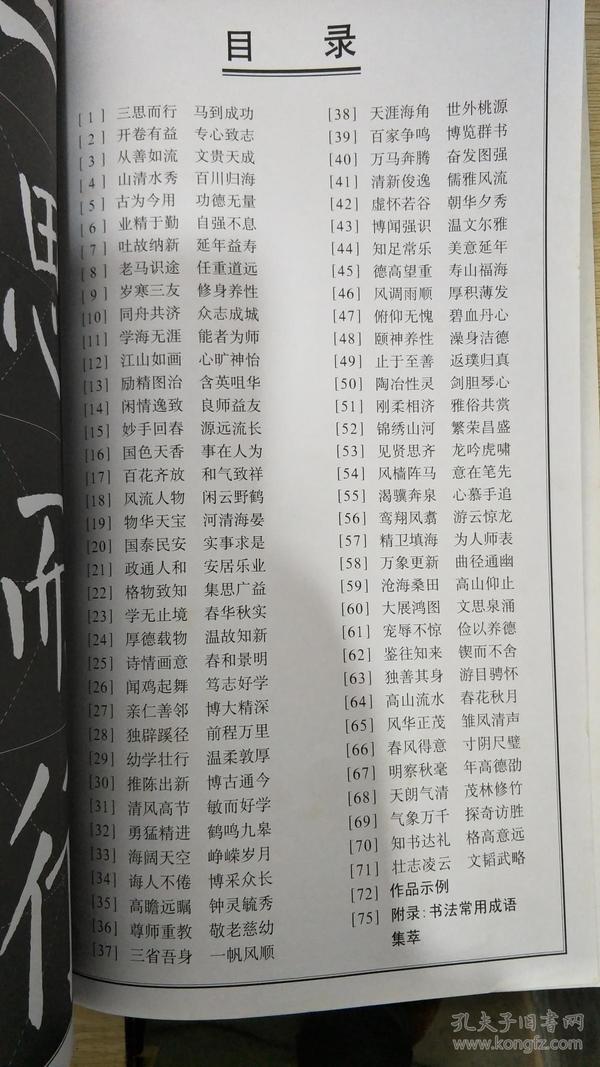 目 录
[1] 三思而行 马到成功
[2] 开卷有益 专心致志
[3] 从善如流 文贵天成
[4] 山清水秀 百川归海
[5] 古为今用 功德无量
[6] 业精于勤 自强不息
[7] 吐故纳新 延年益寿
[8] 老马识途 任重道远
[9] 岁寒三友 修身养性
[10] 同舟共济 众志成城
[11] 学海无涯 能者为师
[12] 江山如画 心旷神怡
[13] 励精图治 含英咀华
[14] 闲情逸致 良师益友
[15] 妙手回春 源远流长
[16] 国色天香 事在人为
[17] 百花齐放 和气致祥
[18] 风流人物 闲云野鹤
[19] 物华天宝 河清海晏
[20] 国泰民安 实事求是
[21] 政通人和 安居乐业
[22] 格物致知 集思广益
[23] 学无止境 春华秋实
[24] 厚德载物 温故知新
[25] 诗情画意 春和景明
[26] 闻鸡起舞 笃志好学
[27] 亲仁善邻 博大精深
[28] 独辟蹊径 前程万里
[29] 幼学壮行 温柔敦厚
[30] 推陈出新 博古通今
[31] 清风高节 敏而好学
[32] 勇猛精进 鹤鸣九皋
[33] 海阔天空 峥嵘岁月
[34] 诲人不倦 博采众长
[35] 高瞻远瞩 钟灵毓秀
[36] 尊师重教 敬老慈幼
[37] 三省吾身 一帆风顺
[38] 天涯海角 世外桃源
[39] 百家争鸣 博览群书
[40] 万马奔腾 奋发图强
[41] 清新俊逸 儒雅风流
[42] 虚怀若谷 朝华夕秀
[43] 博闻强识 温文尔雅
[44] 知足常乐 美意延年
[45] 德高望重 寿山福海
[46] 风调雨顺 厚积薄发
[47] 俯仰无愧 碧血丹心
[48] 颐神养性 澡身洁德
[49] 止于至善 返璞归真
[50] 陶冶性灵 剑胆琴心
[51] 刚柔相济 雅俗共赏
[52] 锦绣山河 繁荣昌盛
[53] 见贤思齐 龙吟虎啸
[54] 风樯阵马 意在笔先
[55] 渴骥奔泉 心慕手追
[56] 鸾翔凤翥 游云惊龙
[57] 精卫填海 为人师表
[58] 万象更新 曲径通幽
[59] 沧海桑田 高山仰止
[60] 大展鸿图 文思泉涌
[61] 宠辱不惊 俭以养德
[62] 鉴往知来 锲而不舍
[63] 独善其身 游目骋怀
[64] 高山流水 春花秋月
[65] 风华正茂 雏凤清声
[66] 春风得意 寸阴尺璧
[67] 明察秋毫 年高德劭
[68] 天朗气清 茂林修竹
[69] 气象万千 探奇访胜
[70] 知书达礼 格高意远
[71] 壮志凌云 文韬武略
[72] 作品示例
[75] 附录:书法常用成语
集萃
思
孔夫子旧书网
kongfz.com